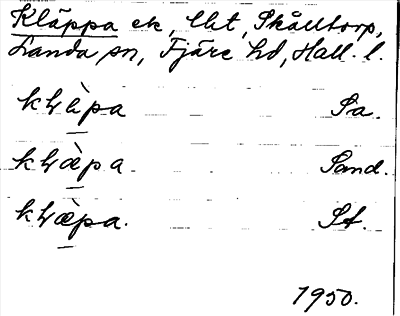 Kläppa ek, lht, Skålltorp,
Landa sn, Fjäre hd, Hall. l.
kḷæ̀pa Sa.
kḷæ̀pa Sand.
kḷæ̀pa. St.
1950.